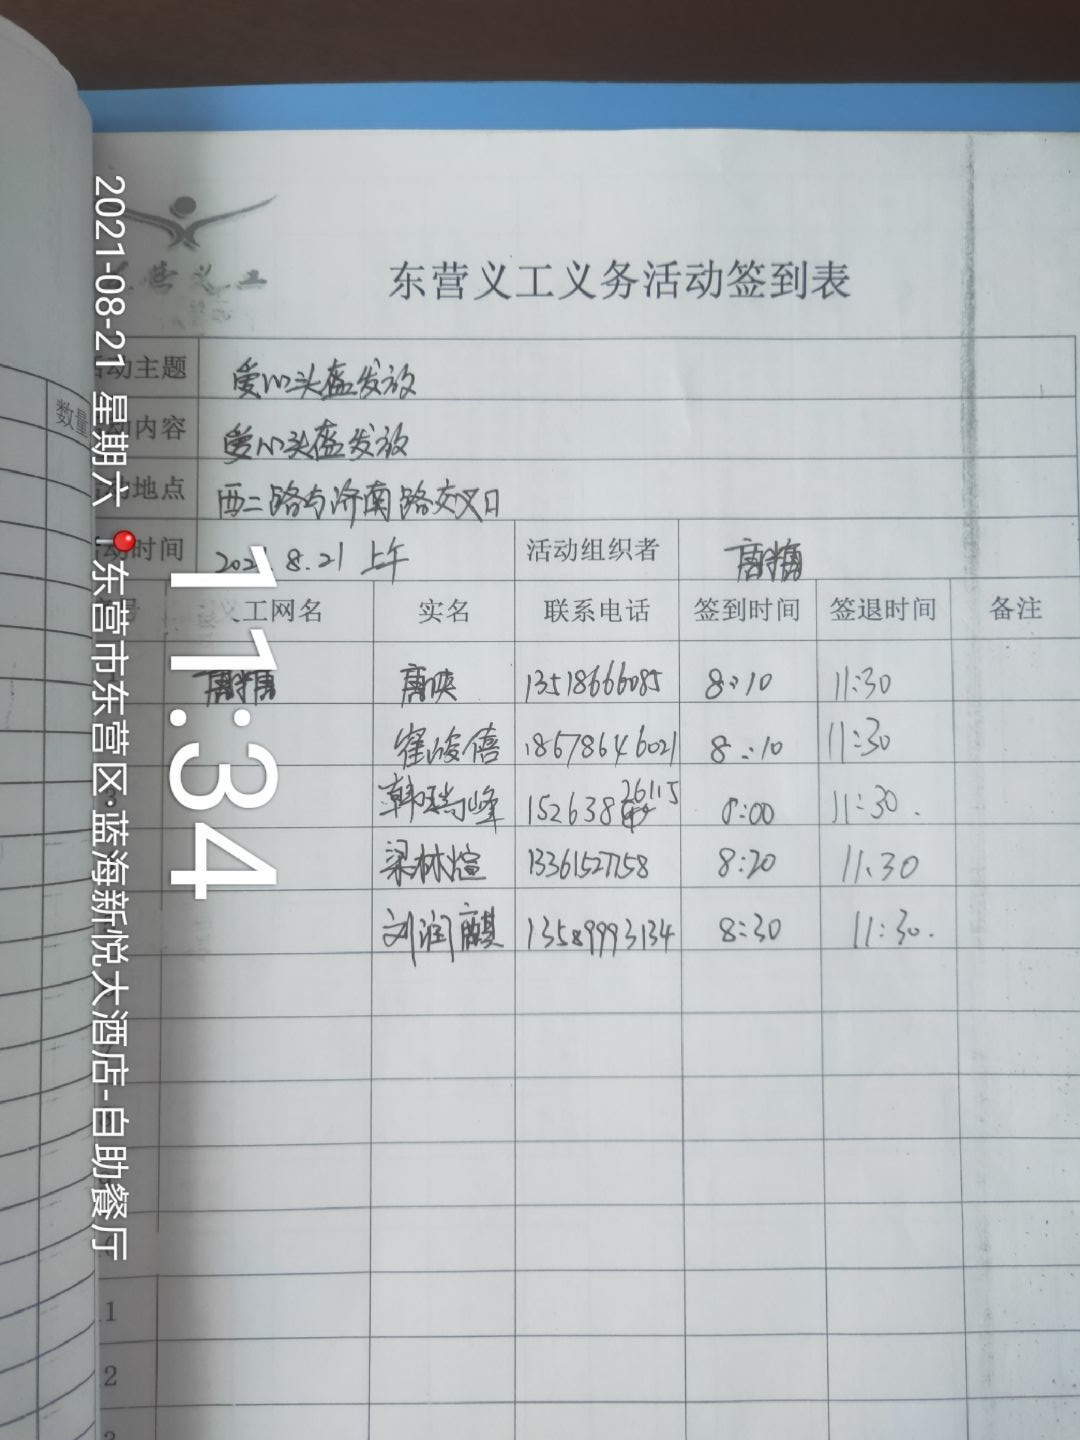 东营义工义务活动签到表
营义工
数量
动主题 爱心头盔发放
动内容 爱心头盔发放
动地点 西二路与济南路交叉口
动时间 2021.8.21 上午 活动组织者
工网名 实名 联系电话 签到时间 签退时间 备注
13518666085 8:10 11:30
崔峻僖 18678646021 8:10 11:30
韩瑞峰 152638 26115 8:00 11:30.
梁林煊 13361527158 8:20 11:30
刘润麒 13589993134 8:30 11:30.
1
2
3
2021-08-21 星期六 东营市东营区·蓝海新悦大酒店-自助餐厅
11:34